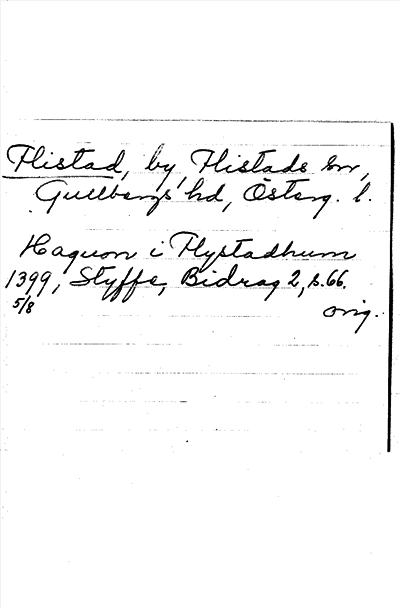 Flistad, by, Flistads sn,
Gullbergs hd, Österg. l.
Haquon i Flystadhum
1399, Styffe, Bidrag 2, s. 66.
5/8 orig.